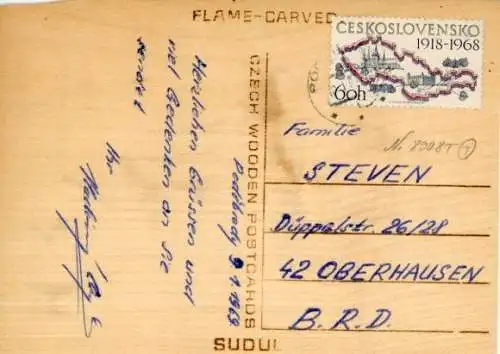 FLAME-CARVED
CZECH WOODEN POSTCARDS
SUDUL
ČESKOSLOVENSKO
1918-1968
60h
Poděbrady 9.1.1969
Herzlichen Grüssen und
viel Gedenken an Sie
sendet
Ihr
Familie
STEVEN
Düppelstr. 26/28
42 OBERHAUSEN
B.R.D.